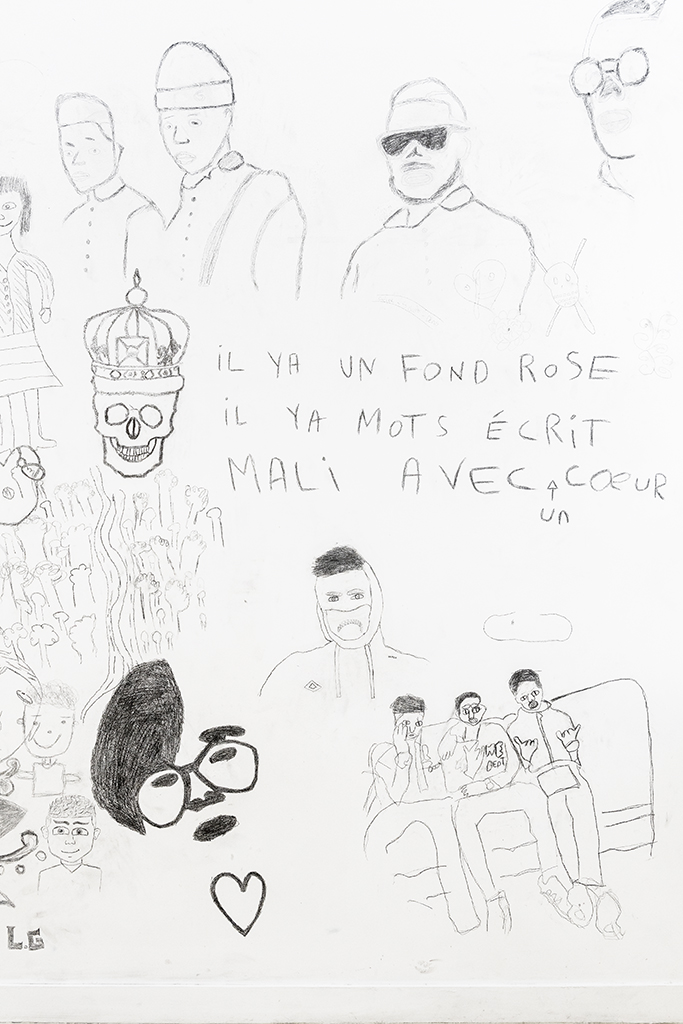 iL YA UN FOND ROSE
iL YA MOTS ÉCRiT
MALi AVEC COEUR
un
L.G